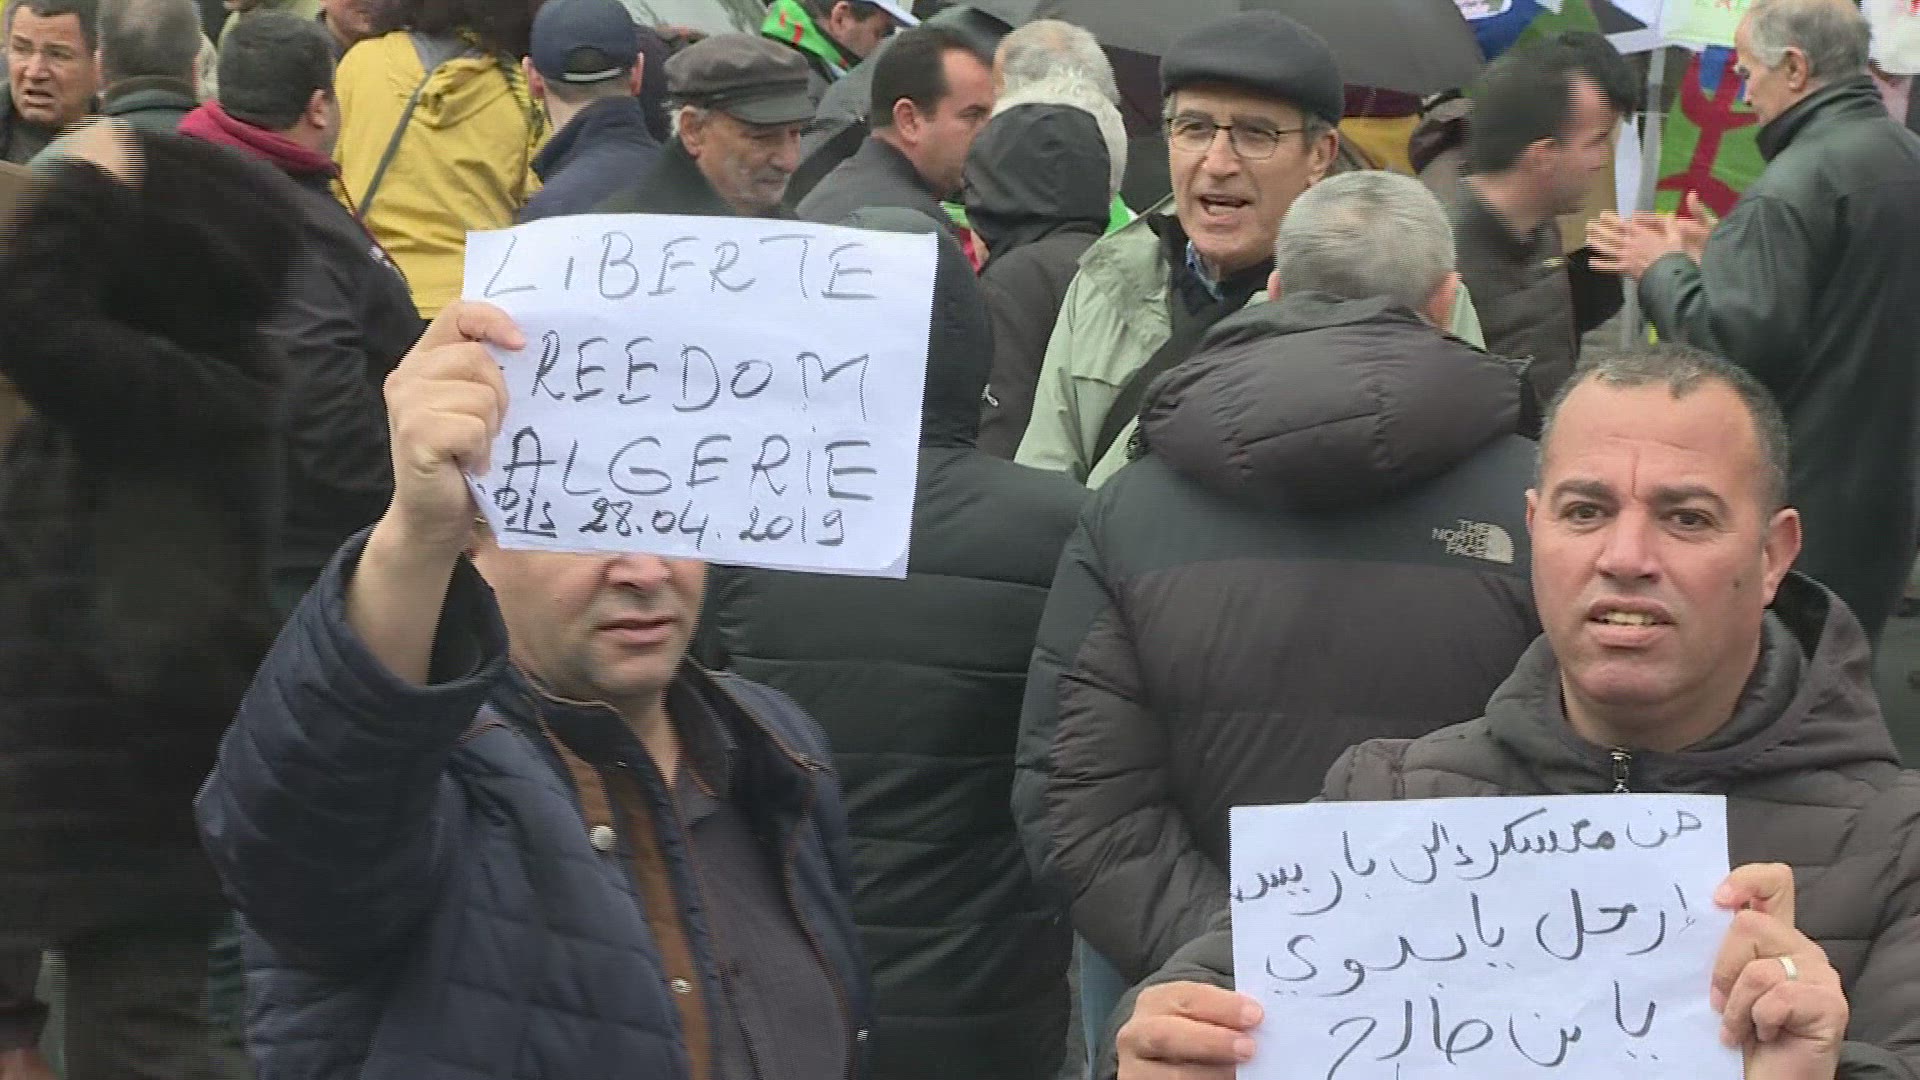 LiBERTE
FREEDOM
ALGERiE
28.04.2019
THE
NORTH
FACE
من معسكر إلى باريس
إرحل يا بدوي
يا بن صالح